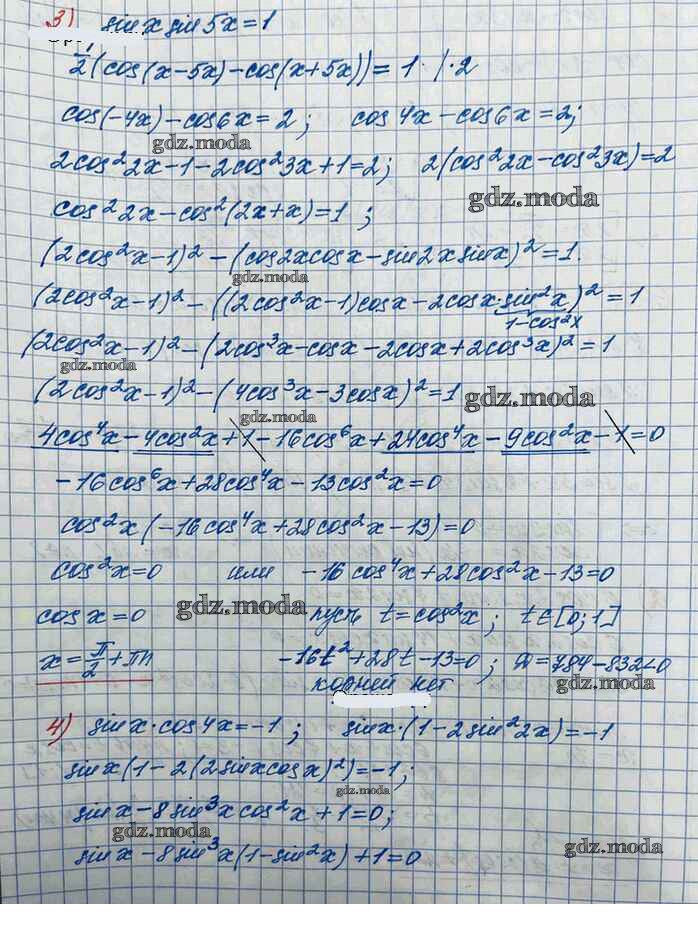 3) sin x sin 5x = 1
1/2 (cos(x-5x) - cos(x+5x)) = 1 · | · 2
cos(-4x) - cos6x = 2 ; cos 4x - cos6x = 2;
gdz.moda
2cos²2x - 1 - 2cos²3x + 1 = 2; 2(cos²2x - cos²3x) = 2
gdz.moda
cos²2x - cos²(2x+x) = 1 ;
(2cos²x - 1)² - (cos2x cosx - sin2x sinx)² = 1.
gdz.moda
(2cos²x - 1)² - ((2cos²x - 1)cosx - 2cosx · sin²x)² = 1
1-cos²x
(2cos²x - 1)² - (2cos³x - cosx - 2cosx + 2cos³x)² = 1
gdz.moda
(2cos²x - 1)² - (4cos³x - 3cosx)² = 1
gdz.moda
gdz.moda
4cos⁴x - 4cos²x + 1 - 16cos⁶x + 24cos⁴x - 9cos²x - 1 = 0
-16cos⁶x + 28cos⁴x - 13cos²x = 0
cos²x (-16cos⁴x + 28cos²x - 13) = 0
cos²x = 0 или -16cos⁴x + 28cos²x - 13 = 0
cos x = 0 gdz.moda пусть t = cos²x ; t ∈ [0; 1]
x = π/2 + πn -16t² + 28t - 13 = 0 ; D = 784 - 832 < 0
gdz.moda
корней нет
4) sin x · cos4x = -1 ; sin x · (1 - 2sin²2x) = -1
sin x (1 - 2(2sinx cosx)²) = -1;
gdz.moda
sin x - 8sin³x cos²x + 1 = 0;
gdz.moda
gdz.moda
sin x - 8sin³x (1 - sin²x) + 1 = 0